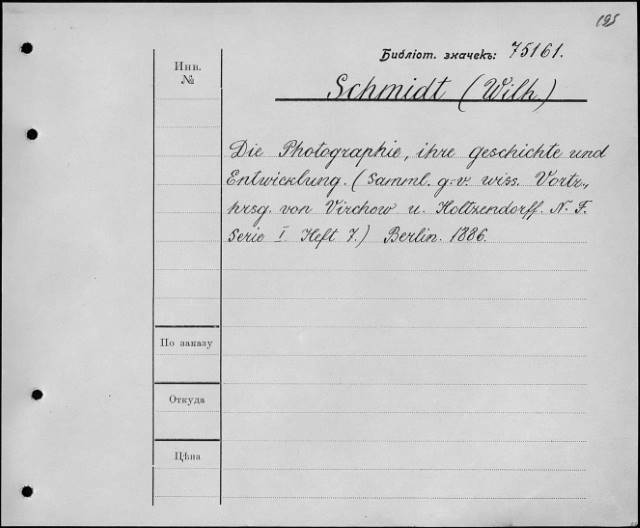 195
Библіот. значекъ: 75161.
Инв.
№
Schmidt (Wilh)
Die Photographie, ihre geschichte und
Entwicklung. (Samml. g.-v. wiss. Vortr.,
hrsg. von Virchow u. Holtzendorff. N. F.
Serie I. Heft 7.) Berlin. 1886.
По заказу
Откуда
Цѣна